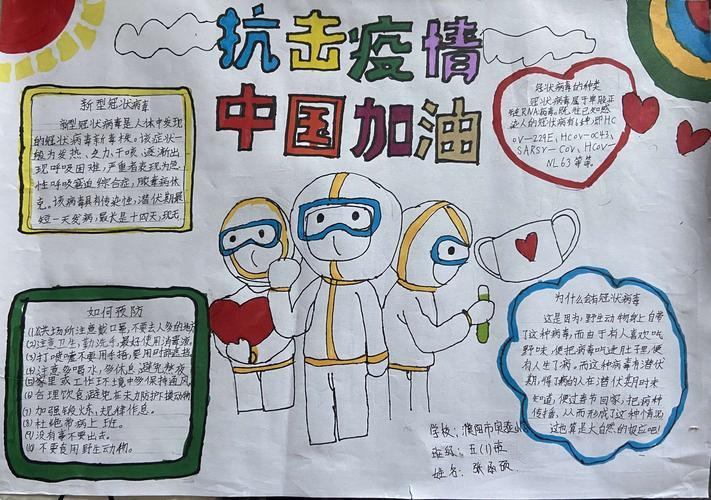 抗击疫情
中国加油
新型冠状病毒
新型冠状病毒是人体中发现
的冠状病毒新毒株。该症状一
般为发热、乏力、干咳、逐渐出
现呼吸困难，严重者表现为急
性呼吸窘迫综合症，脓毒病休
克。该病毒具有传染性，潜伏期最
短一天发病，最长是十四天，现无
冠状病毒的种类
冠状病毒属于单股正
链RNA病毒。既往已知感
染人的冠状病毒有6种，即HC
OV-229E，HCOV-OC43，
SARSr-COV，HCOV-
NL63等等。
如何预防
(1)公共场所注意戴口罩，不要去人多的地方
(2)注意卫生，勤洗手，最好使用消毒液。
(3)打喷嚏不要用手捂，要用
(4)注意多喝水，多休息，避免熬夜
(5)家里或工作环境中多保持通风
(6)合理饮食，避免在未防护接动物
(7)加强锻炼，规律作息。
(8)杜绝带病上班。
(9)没有事不要出去。
不要食用野生动物。
为什么会有冠状病毒
这是因为野生动物身上自带
了这种病毒，而由于有人喜欢吃
野味，便把病毒吃进肚子里，便
有人生了病。而这种病毒有潜伏
期，得了病的人在潜伏期时未
知道，便过春节回家，把病种
传播，从而形成了这种情况
这也算是大自然的报应吧！
学校：濮阳市
班级：五(1)班
姓名：张